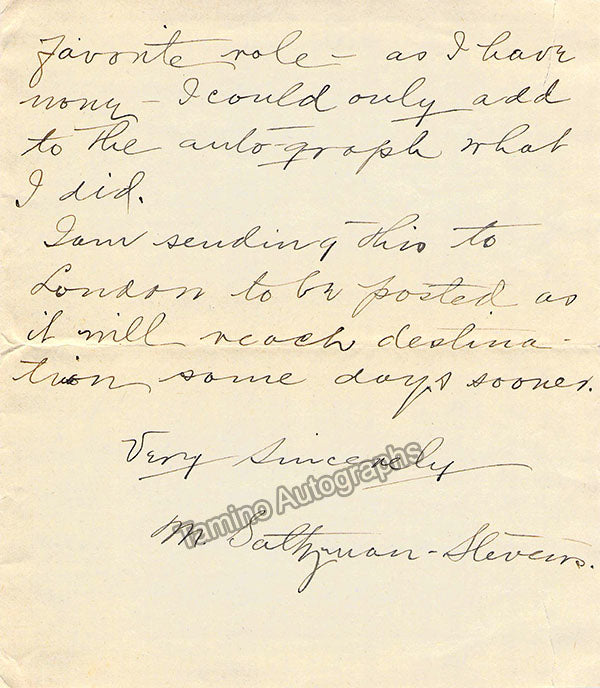 favorite role - as I have
none - I could only add
to the auto-graph what
I did.
I am sending this to
London to be posted as
it will reach destina-
tion some days sooner.
Very Sincerely
Tamino Autographs
M Saltzman-Stevens.